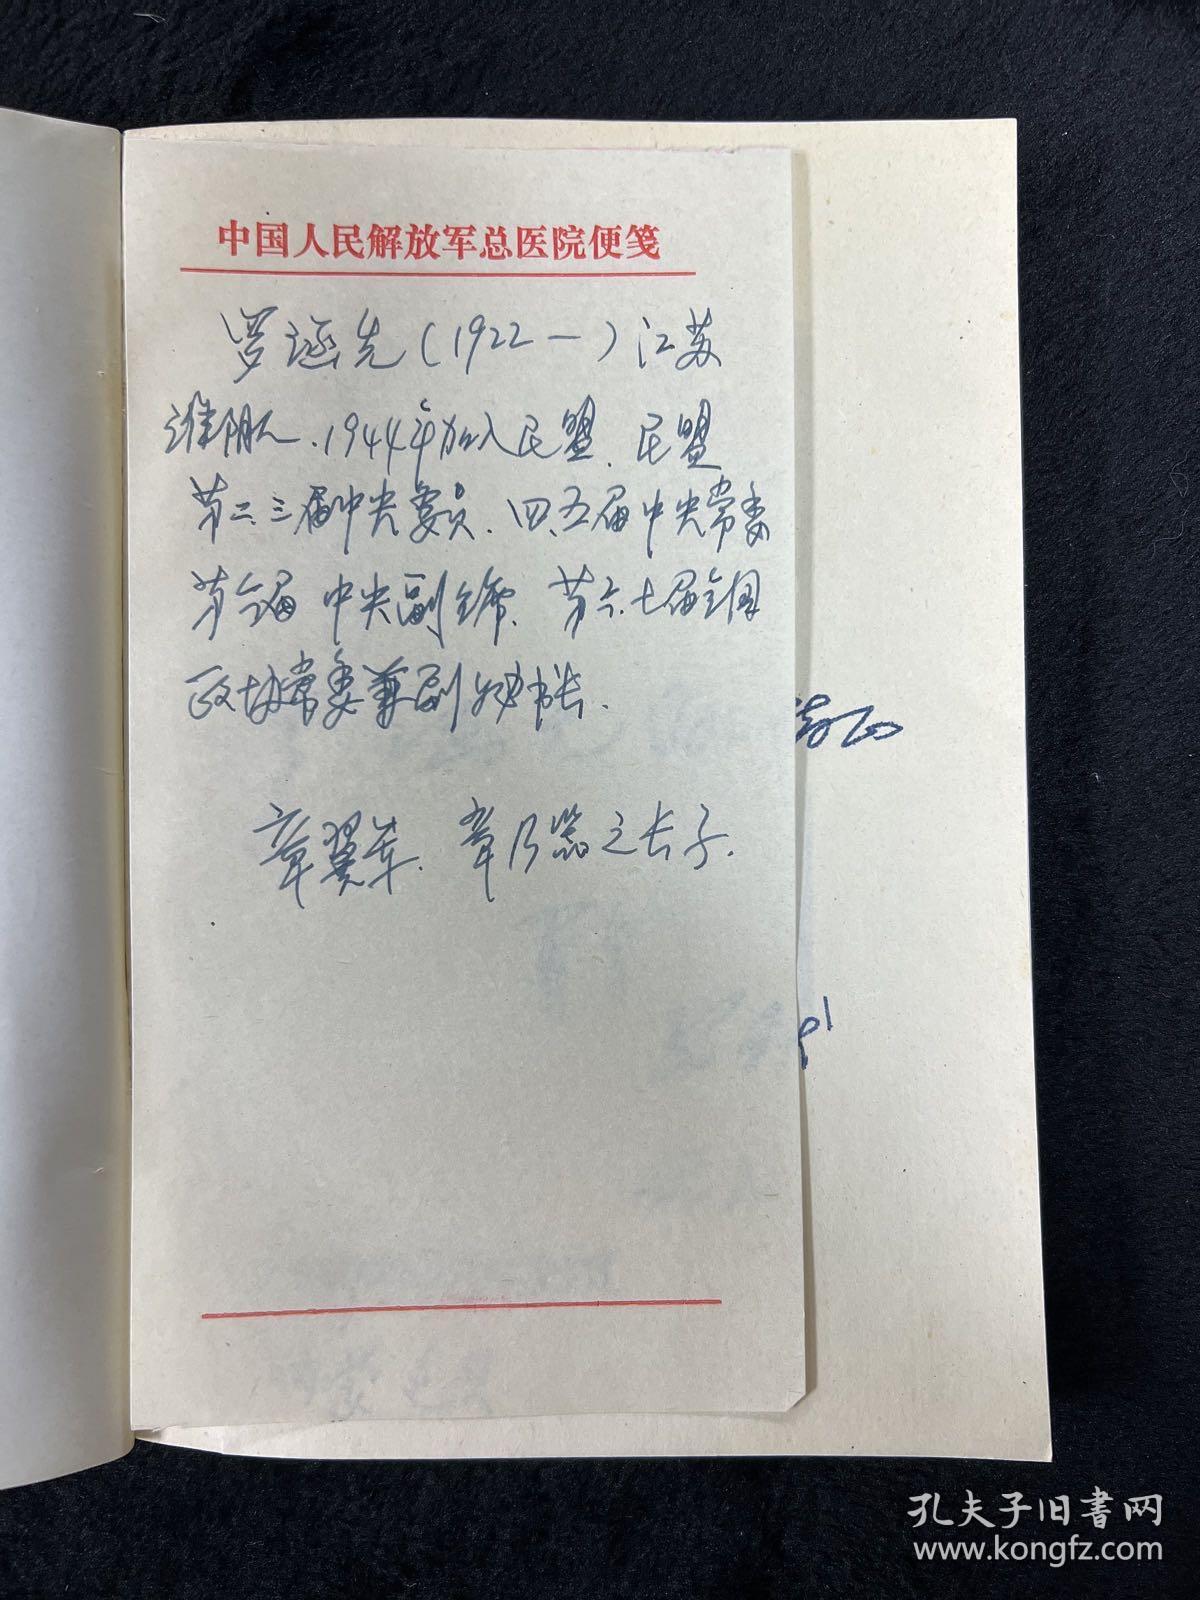 中国人民解放军总医院便笺
罗涵先（1922一）江苏
淮阴人.1944年加入民盟.民盟
第二、三届中央委员.四、五届中央常委
第六届中央副主席.第六.七届全国
政协常委兼副秘书长.
章翼军.章乃器之长子.
孔夫子旧書网
www.kongfz.com